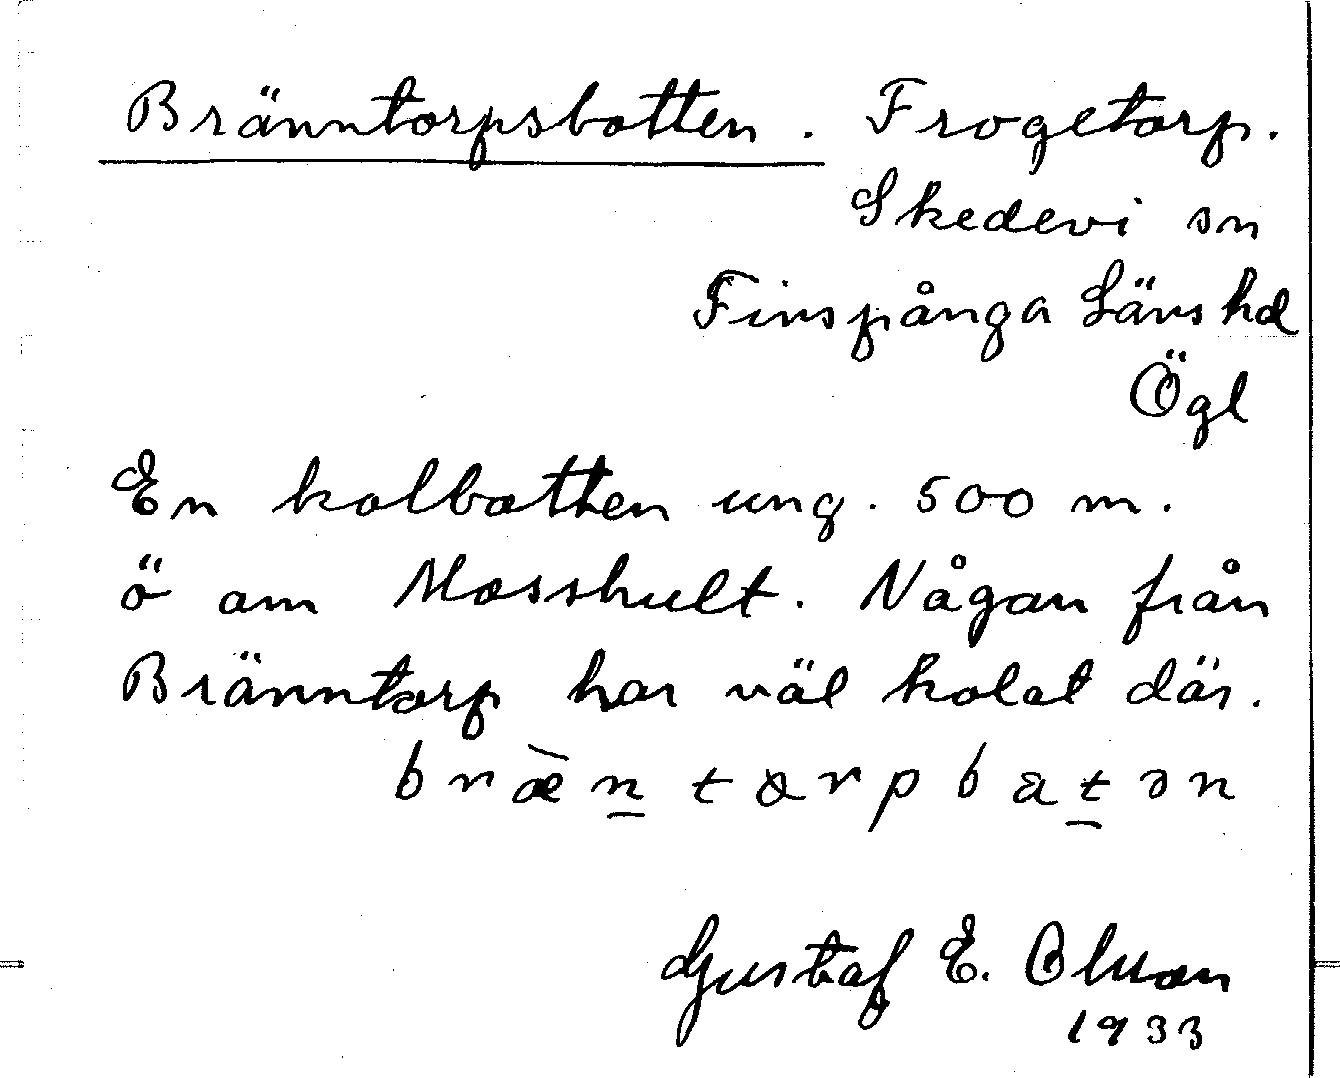 Bränntorpsbotten. Frogetorp.
Skedevi sn
Finspånga Läns hd
Ögl
En kolbotten ung. 500 m.
ö om Mosshult. Någon från
Bränntorp har väl kolat där.
bræ̀n̲tɷrpbɑt̲ən
Gustaf E. Olsson
1933